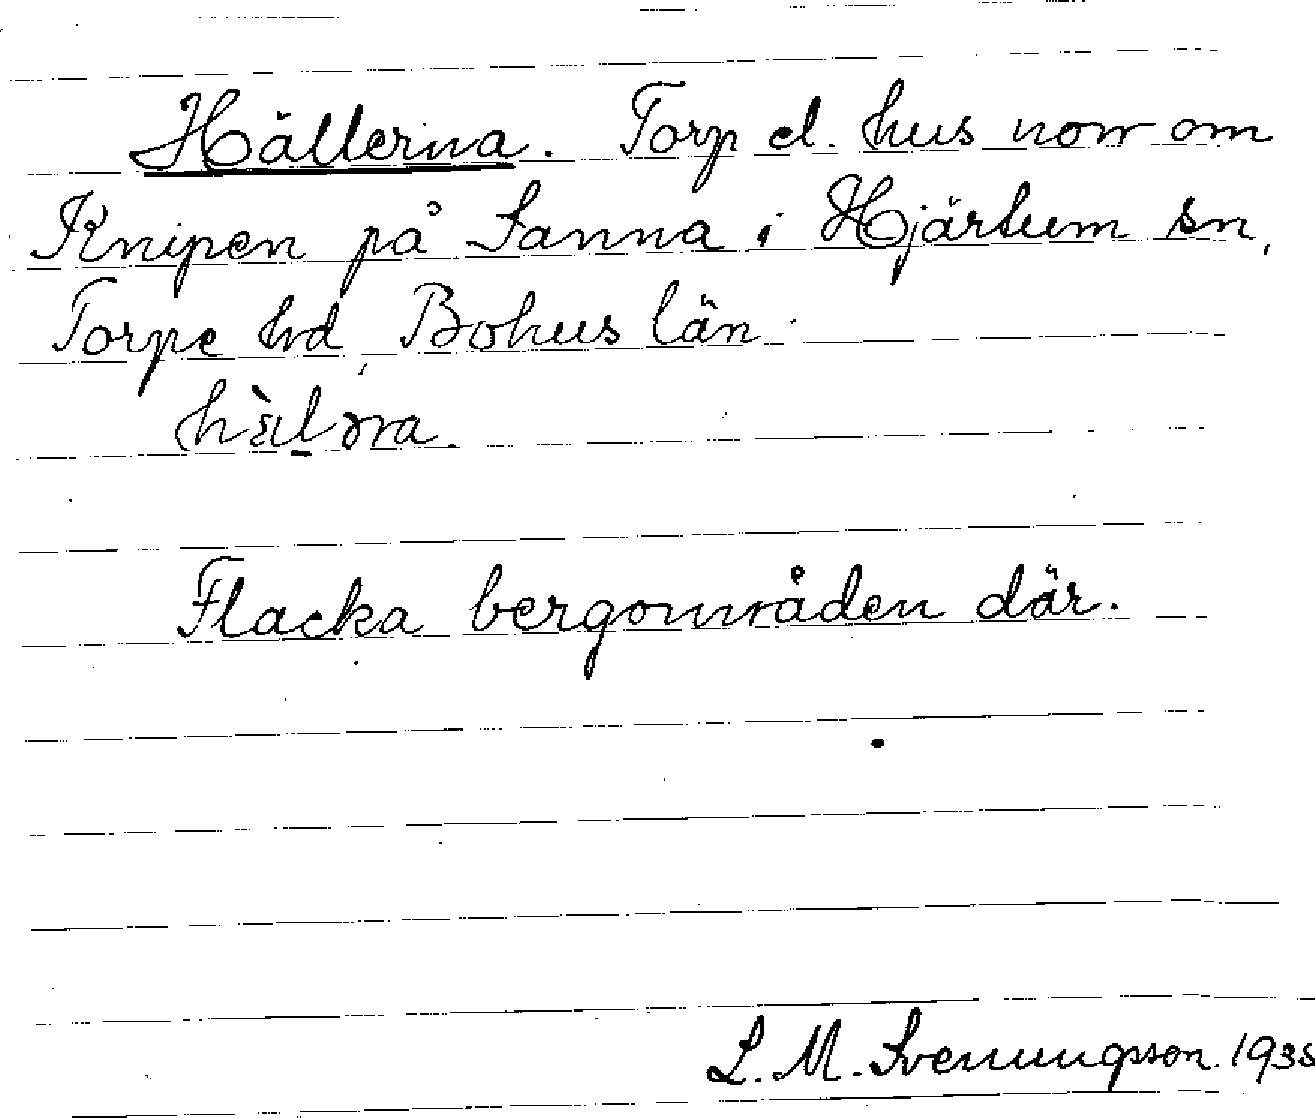 Hällerna. Torp el. hus norr om
Knipen på Sanna i Hjärtum sn,
Torpe hd, Bohus län.
Flacka bergområden där.
L. M. Svenungsson. 1935